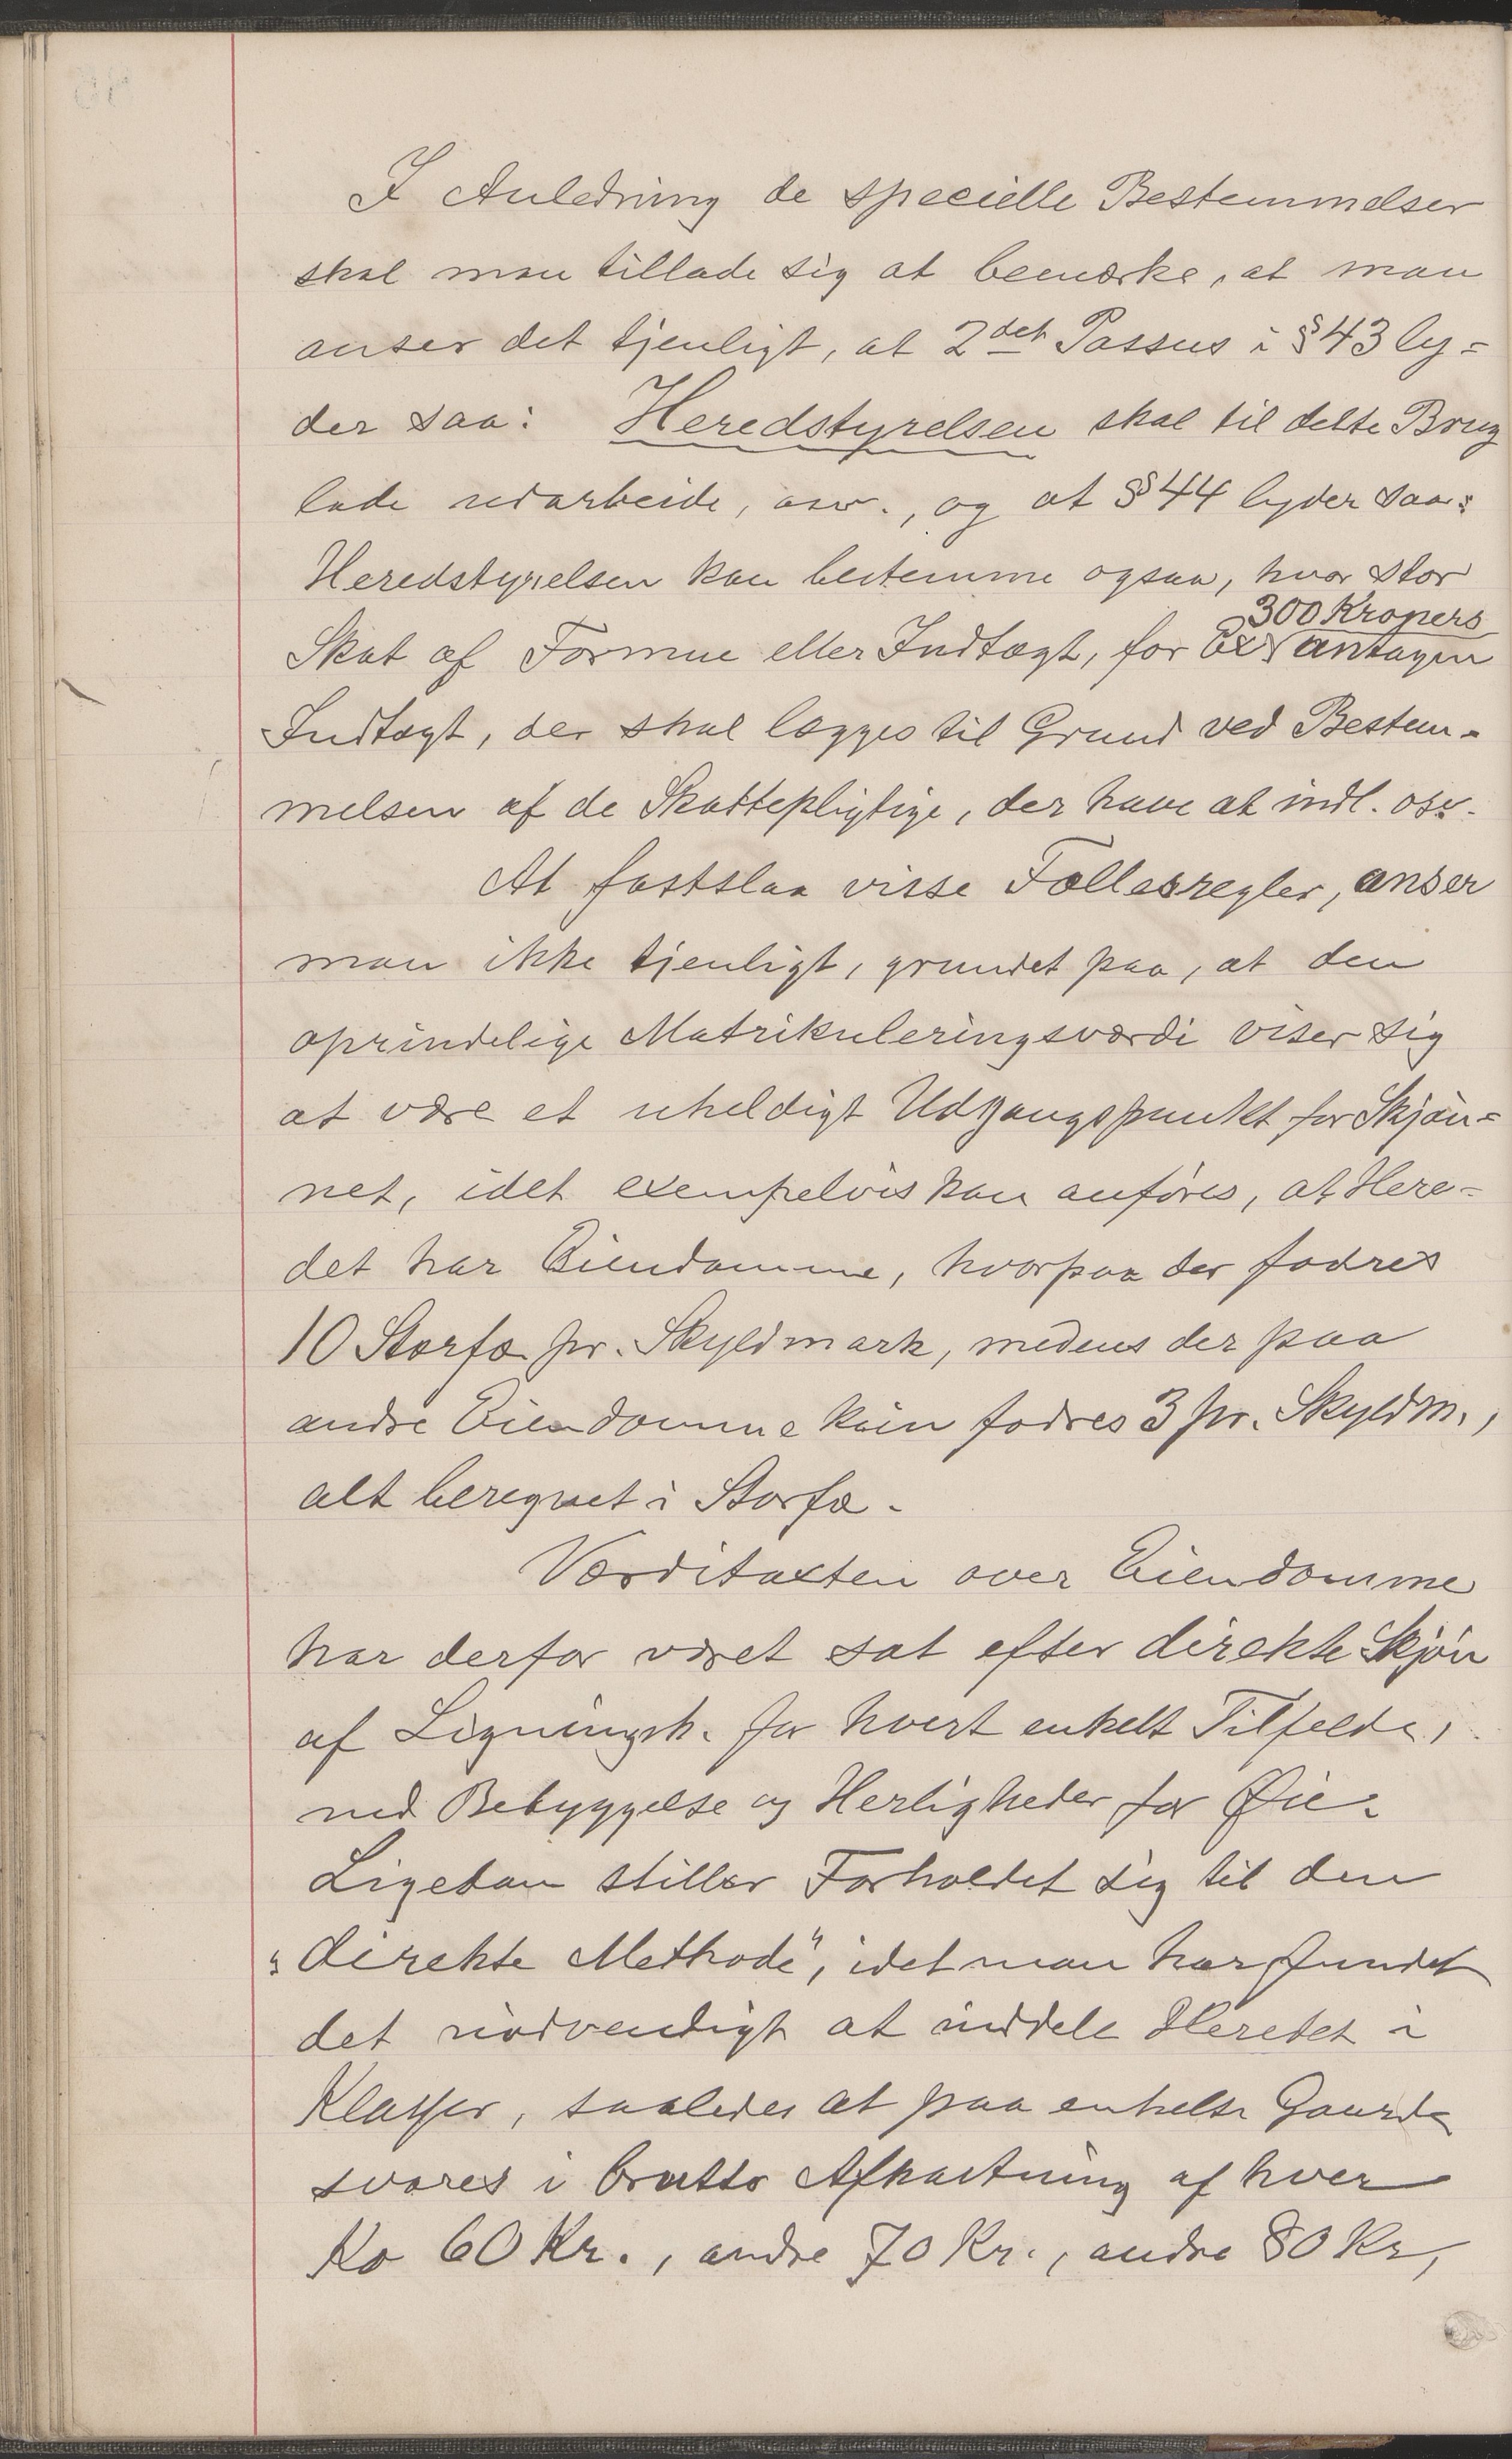 I Anledning de specielle Bestemmelser
skal man tillade sig at bemærke, at man
anser det tjenligt, at 2det Passus i § 43 ly=
der saa: Heredstyrelsen skal til dette Brug
lade udarbeide, osv., og at § 44 lyder saa:
Heredstyrelsen kan bestemme ogsaa, hvor stor
300 Kroners
Skat af Formue eller Indtægt, for antagen
Indtægt, der skal lægges til Grund ved Bestem-
melsen af de Skattepligtige, der have at indl. osv.
At fastslaa visse Fællesregler, anser
man ikke tjenligt, grundet paa, at den
oprindelige Matrikuleringsværdi viser sig
at være et uheldigt Udgangspunkt for Skjøn=
net, idet exempelvis kan anføres, at Here=
det har Eiendomme, hvorpaa der fødres
10 Storfæ pr. Skyldmark, medens der paa
andre Eiendomme kun fødres 3 pr. Skyldm.,
alt beregnet i Storfæ.
Værditaxten over Eiendomme
har derfor været sat efter direkte Skjøn
af Ligningsk. for hvert enkelt Tilfelde,
med Bebyggelse og Herligheder for Øie.
Ligedan stiller Forholdet sig til den
"direkte Methode", idet man har fundet
det nødvendigt at inddele Heredet i
Klasser, saaledes at paa enkelte Gaarde
svares i brutto Afkastning af hver
Ko 60 Kr., andre 70 Kr., andre 80 Kr,